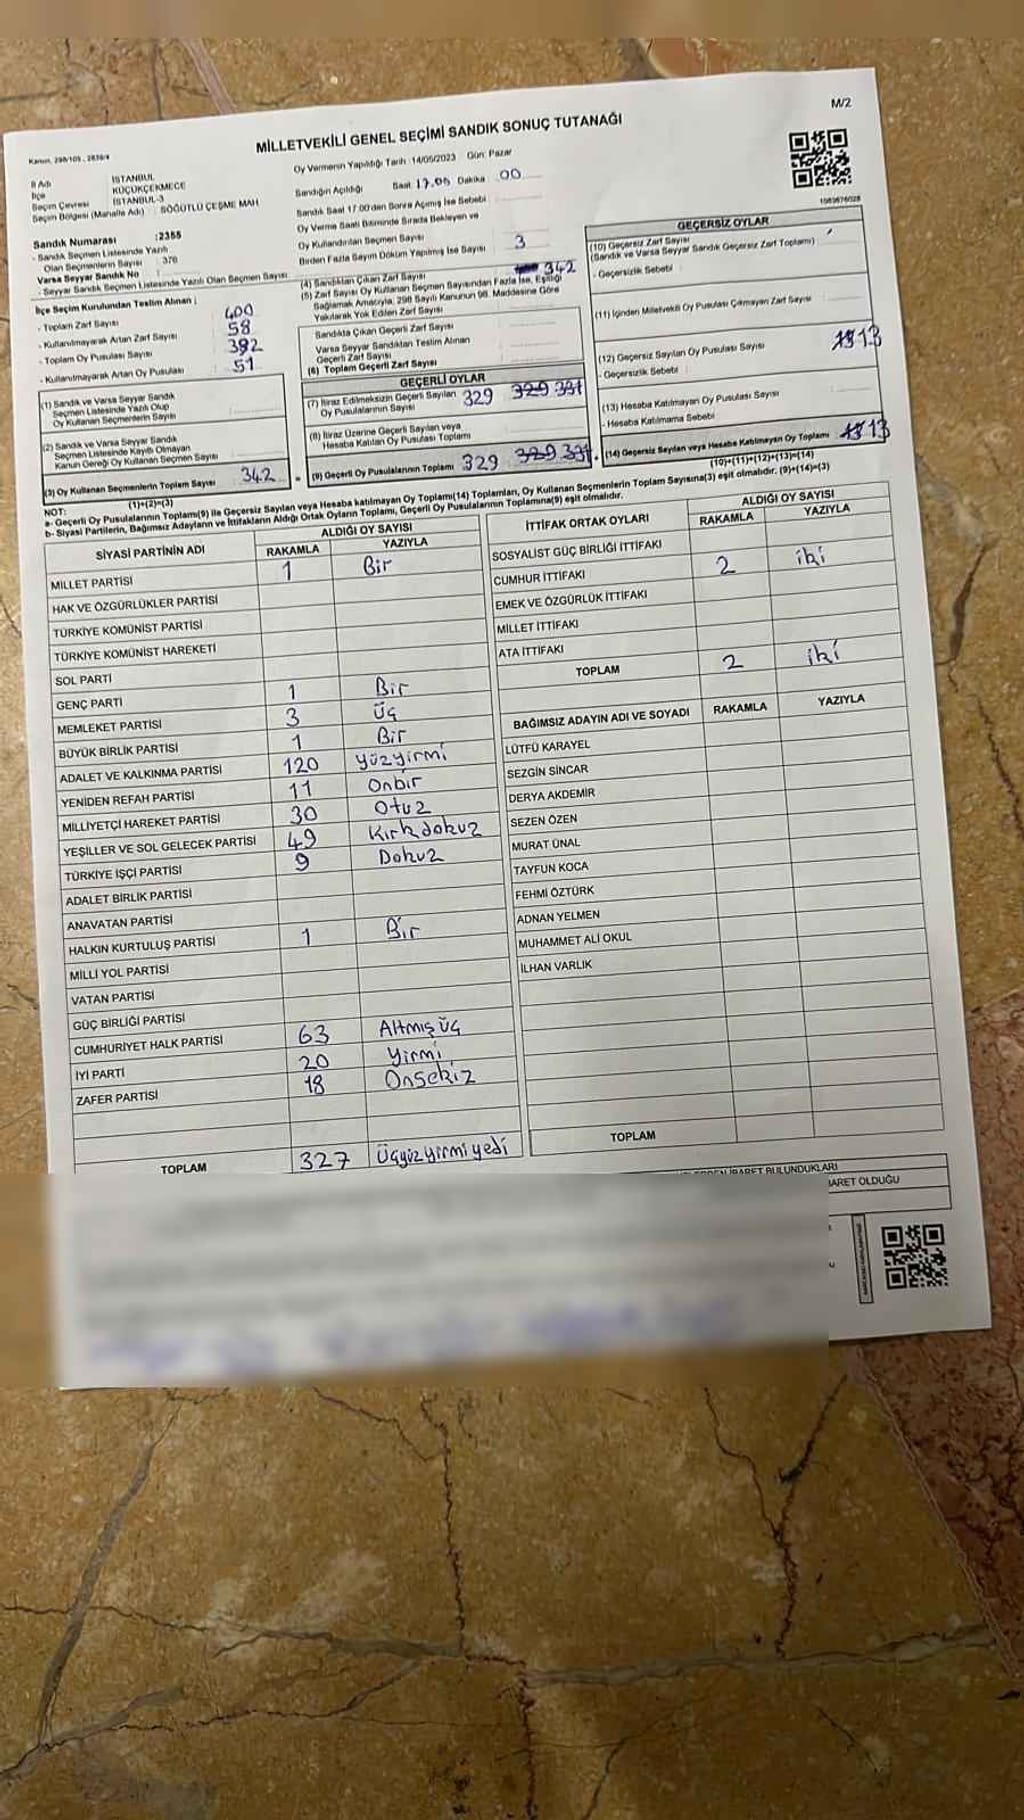 M/2
MİLLETVEKİLİ GENEL SEÇİMİ SANDIK SONUÇ TUTANAĞI
Kanun, 298/105, 2839/4
İl Adı İSTANBUL
İlçe KÜÇÜKÇEKMECE
Seçim Çevresi İSTANBUL-3
Seçim Bölgesi (Mahalle Adı) : SÖĞÜTLÜ ÇEŞME MAH
Sandık Numarası :2355
- Sandık Seçmen Listesinde Yazılı
Olan Seçmenlerin Sayısı : 376
Varsa Seyyar Sandık No :
- Seyyar Sandık Seçmen Listesinde Yazılı Olan Seçmen Sayısı:
Oy Vermenin Yapıldığı Tarih :14/05/2023 Gün: Pazar
Sandığın Açıldığı Saat 17.05 Dakika .00
Sandık Saat 17:00'den Sonra Açılmış İse Sebebi
Oy Verme Saati Bitiminde Sırada Bekleyen ve
Oy Kullandırılan Seçmen Sayısı
Birden Fazla Sayım Döküm Yapılmış İse Sayısı 3
İlçe Seçim Kurulundan Teslim Alınan ;
- Toplam Zarf Sayısı 400
- Kullanılmayarak Artan Zarf Sayısı 58
- Toplam Oy Pusulası Sayısı 392
- Kullanılmayarak Artan Oy Pusulası 51
(1) Sandık ve Varsa Seyyar Sandık
Seçmen Listesinde Yazılı Olup
Oy Kullanan Seçmenlerin Sayısı
(2) Sandık ve Varsa Seyyar Sandık
Seçmen Listesinde Kayıtlı Olmayan
Kanun Gereği Oy Kullanan Seçmen Sayısı
(3) Oy Kullanan Seçmenlerin Toplam Sayısı 342
(1)+(2)=(3)
(4) Sandıktan Çıkan Zarf Sayısı 342
(5) Zarf Sayısı Oy Kullanan Seçmen Sayısından Fazla İse, Eşitliği
Sağlamak Amacıyla, 298 Sayılı Kanunun 98. Maddesine Göre
Yakılarak Yok Edilen Zarf Sayısı
Sandıkta Çıkan Geçerli Zarf Sayısı
Varsa Seyyar Sandıktan Teslim Alınan
Geçerli Zarf Sayısı
(6) Toplam Geçerli Zarf Sayısı
GEÇERLİ OYLAR
(7) İtiraz Edilmeksizin Geçerli Sayılan
Oy Pusulalarının Sayısı 329 329 331
(8) İtiraz Üzerine Geçerli Sayılan veya
Hesaba Katılan Oy Pusulası Toplamı
= (9) Geçerli Oy Pusulalarının Toplamı 329 329 331 +
GEÇERSİZ OYLAR
(10) Geçersiz Zarf Sayısı
(Sandık ve Varsa Seyyar Sandık Geçersiz Zarf Toplamı)
- Geçersizlik Sebebi :
(11) İçinden Milletvekili Oy Pusulası Çıkmayan Zarf Sayısı
(12) Geçersiz Sayılan Oy Pusulası Sayısı 13
- Geçersizlik Sebebi :
(13) Hesaba Katılmayan Oy Pusulası Sayısı
- Hesaba Katılmama Sebebi :
(14) Geçersiz Sayılan veya Hesaba Katılmayan Oy Toplamı 13
(10)+(11)+(12)+(13)=(14)
NOT:
a- Geçerli Oy Pusulalarının Toplamı(9) ile Geçersiz Sayılan veya Hesaba katılmayan Oy Toplamı(14) Toplamları, Oy Kullanan Seçmenlerin Toplam Sayısına(3) eşit olmalıdır. (9)+(14)=(3)
b- Siyasi Partilerin, Bağımsız Adayların ve İttifakların Aldığı Ortak Oyların Toplamı, Geçerli Oy Pusulalarının Toplamına(9) eşit olmalıdır.
SİYASİ PARTİNİN ADI ALDIĞI OY SAYISI
RAKAMLA YAZIYLA
MİLLET PARTİSİ 1 Bir
HAK VE ÖZGÜRLÜKLER PARTİSİ
TÜRKİYE KOMÜNİST PARTİSİ
TÜRKİYE KOMÜNİST HAREKETİ
SOL PARTİ
GENÇ PARTİ 1 Bir
MEMLEKET PARTİSİ 3 Üç
BÜYÜK BİRLİK PARTİSİ 1 Bir
ADALET VE KALKINMA PARTİSİ 120 yüzyirmi
YENİDEN REFAH PARTİSİ 11 Onbir
MİLLİYETÇİ HAREKET PARTİSİ 30 Otuz
YEŞİLLER VE SOL GELECEK PARTİSİ 49 Kırkdokuz
TÜRKİYE İŞÇİ PARTİSİ 9 Dokuz
ADALET BİRLİK PARTİSİ
ANAVATAN PARTİSİ
HALKIN KURTULUŞ PARTİSİ 1 Bir
MİLLİ YOL PARTİSİ
VATAN PARTİSİ
GÜÇ BİRLİĞİ PARTİSİ
CUMHURİYET HALK PARTİSİ 63 Altmış üç
İYİ PARTİ 20 Yirmi
ZAFER PARTİSİ 18 Onsekiz
TOPLAM 327 Üçyüzyirmiyedi
İTTİFAK ORTAK OYLARI ALDIĞI OY SAYISI
RAKAMLA YAZIYLA
SOSYALİST GÜÇ BİRLİĞİ İTTİFAKI
CUMHUR İTTİFAKI 2 iki
EMEK VE ÖZGÜRLÜK İTTİFAKI
MİLLET İTTİFAKI
ATA İTTİFAKI
TOPLAM 2 iki
BAĞIMSIZ ADAYIN ADI VE SOYADI RAKAMLA YAZIYLA
LÜTFÜ KARAYEL
SEZGİN SİNCAR
DERYA AKDEMİR
SEZEN ÖZEN
MURAT ÜNAL
TAYFUN KOCA
FEHMİ ÖZTÜRK
ADNAN YELMEN
MUHAMMET ALİ OKUL
İLHAN VARLIK
TOPLAM
BULUNDUKLARI
OLDUĞU